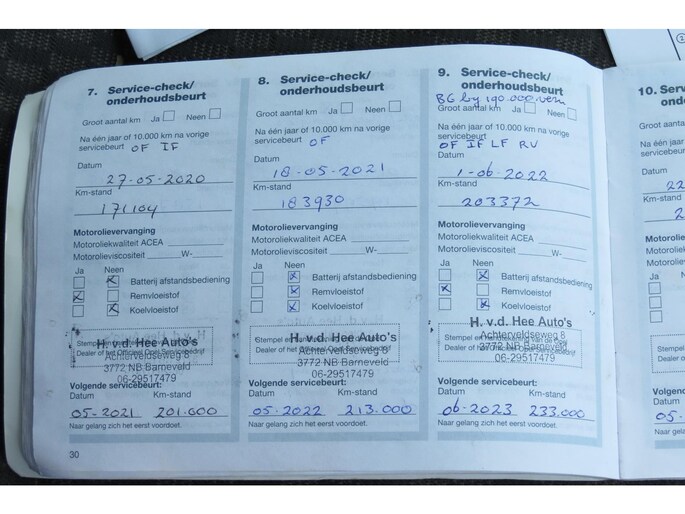 7. Service-check/
onderhoudsbeurt
Groot aantal km Ja Neen
Na één jaar of 10.000 km na vorige
servicebeurt OF IF
Datum
27-05-2020
Km-stand
171104
Motorolievervanging
Motoroliekwaliteit ACEA
Motorolieviscositeit W-
Ja Neen
Batterij afstandsbediening
Remvloeistof
Koelvloeistof
H. v.d. Hee Auto's
Achterveldseweg 8
3772 NB Barneveld
06-29517479
Volgende servicebeurt:
Datum Km-stand
05-2021 201.000
Naar gelang zich het eerst voordoet.
30
8. Service-check/
onderhoudsbeurt
Groot aantal km Ja Neen
Na één jaar of 10.000 km na vorige
servicebeurt OF
Datum
18-05-2021
Km-stand
183930
Motorolievervanging
Motoroliekwaliteit ACEA
Motorolieviscositeit W-
Ja Neen
Batterij afstandsbediening
Remvloeistof
Koelvloeistof
H. v.d. Hee Auto's
Achterveldseweg 8
3772 NB Barneveld
06-29517479
Volgende servicebeurt:
Datum Km-stand
05-2022 213.000
Naar gelang zich het eerst voordoet.
9. Service-check/
onderhoudsbeurt
BG by 190.000
Groot aantal km Ja Neen
Na één jaar of 10.000 km na vorige
servicebeurt
OF IF LF RV
Datum
1-06-2022
Km-stand
203372
Motorolievervanging
Motoroliekwaliteit ACEA
Motorolieviscositeit W-
Ja Neen
Batterij afstandsbediening
Remvloeistof
Koelvloeistof
H. v.d. Hee Auto's
Achterveldseweg 8
3772 NB Barneveld
06-29517479
Volgende servicebeurt:
Datum Km-stand
06-2023 233.000
Naar gelang zich het eerst voordoet.
10. Serv
onde
Groot aanta
Na één jaar
servicebeur
Datum
22
Km-stand
2
Motorolie
Motorolie
Motorolie
Ja
Volgende
Datum
05-
Naar gelang